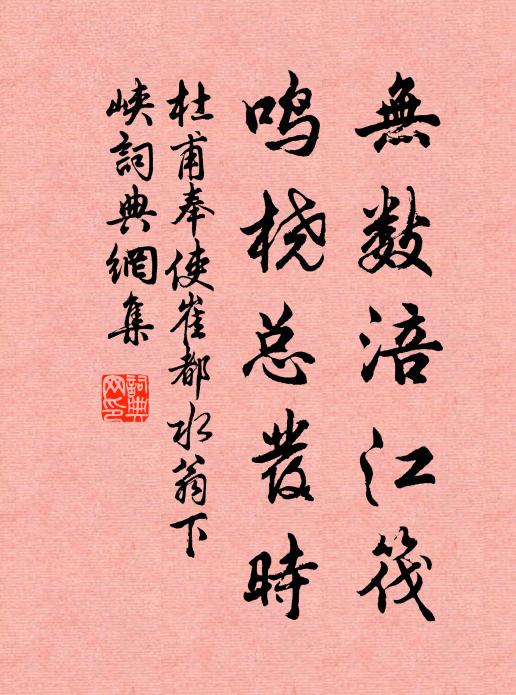 無數涪江筏
鸣桡总發時
杜甫奉使崔都水翁下
峡詞典網集
詞典网印